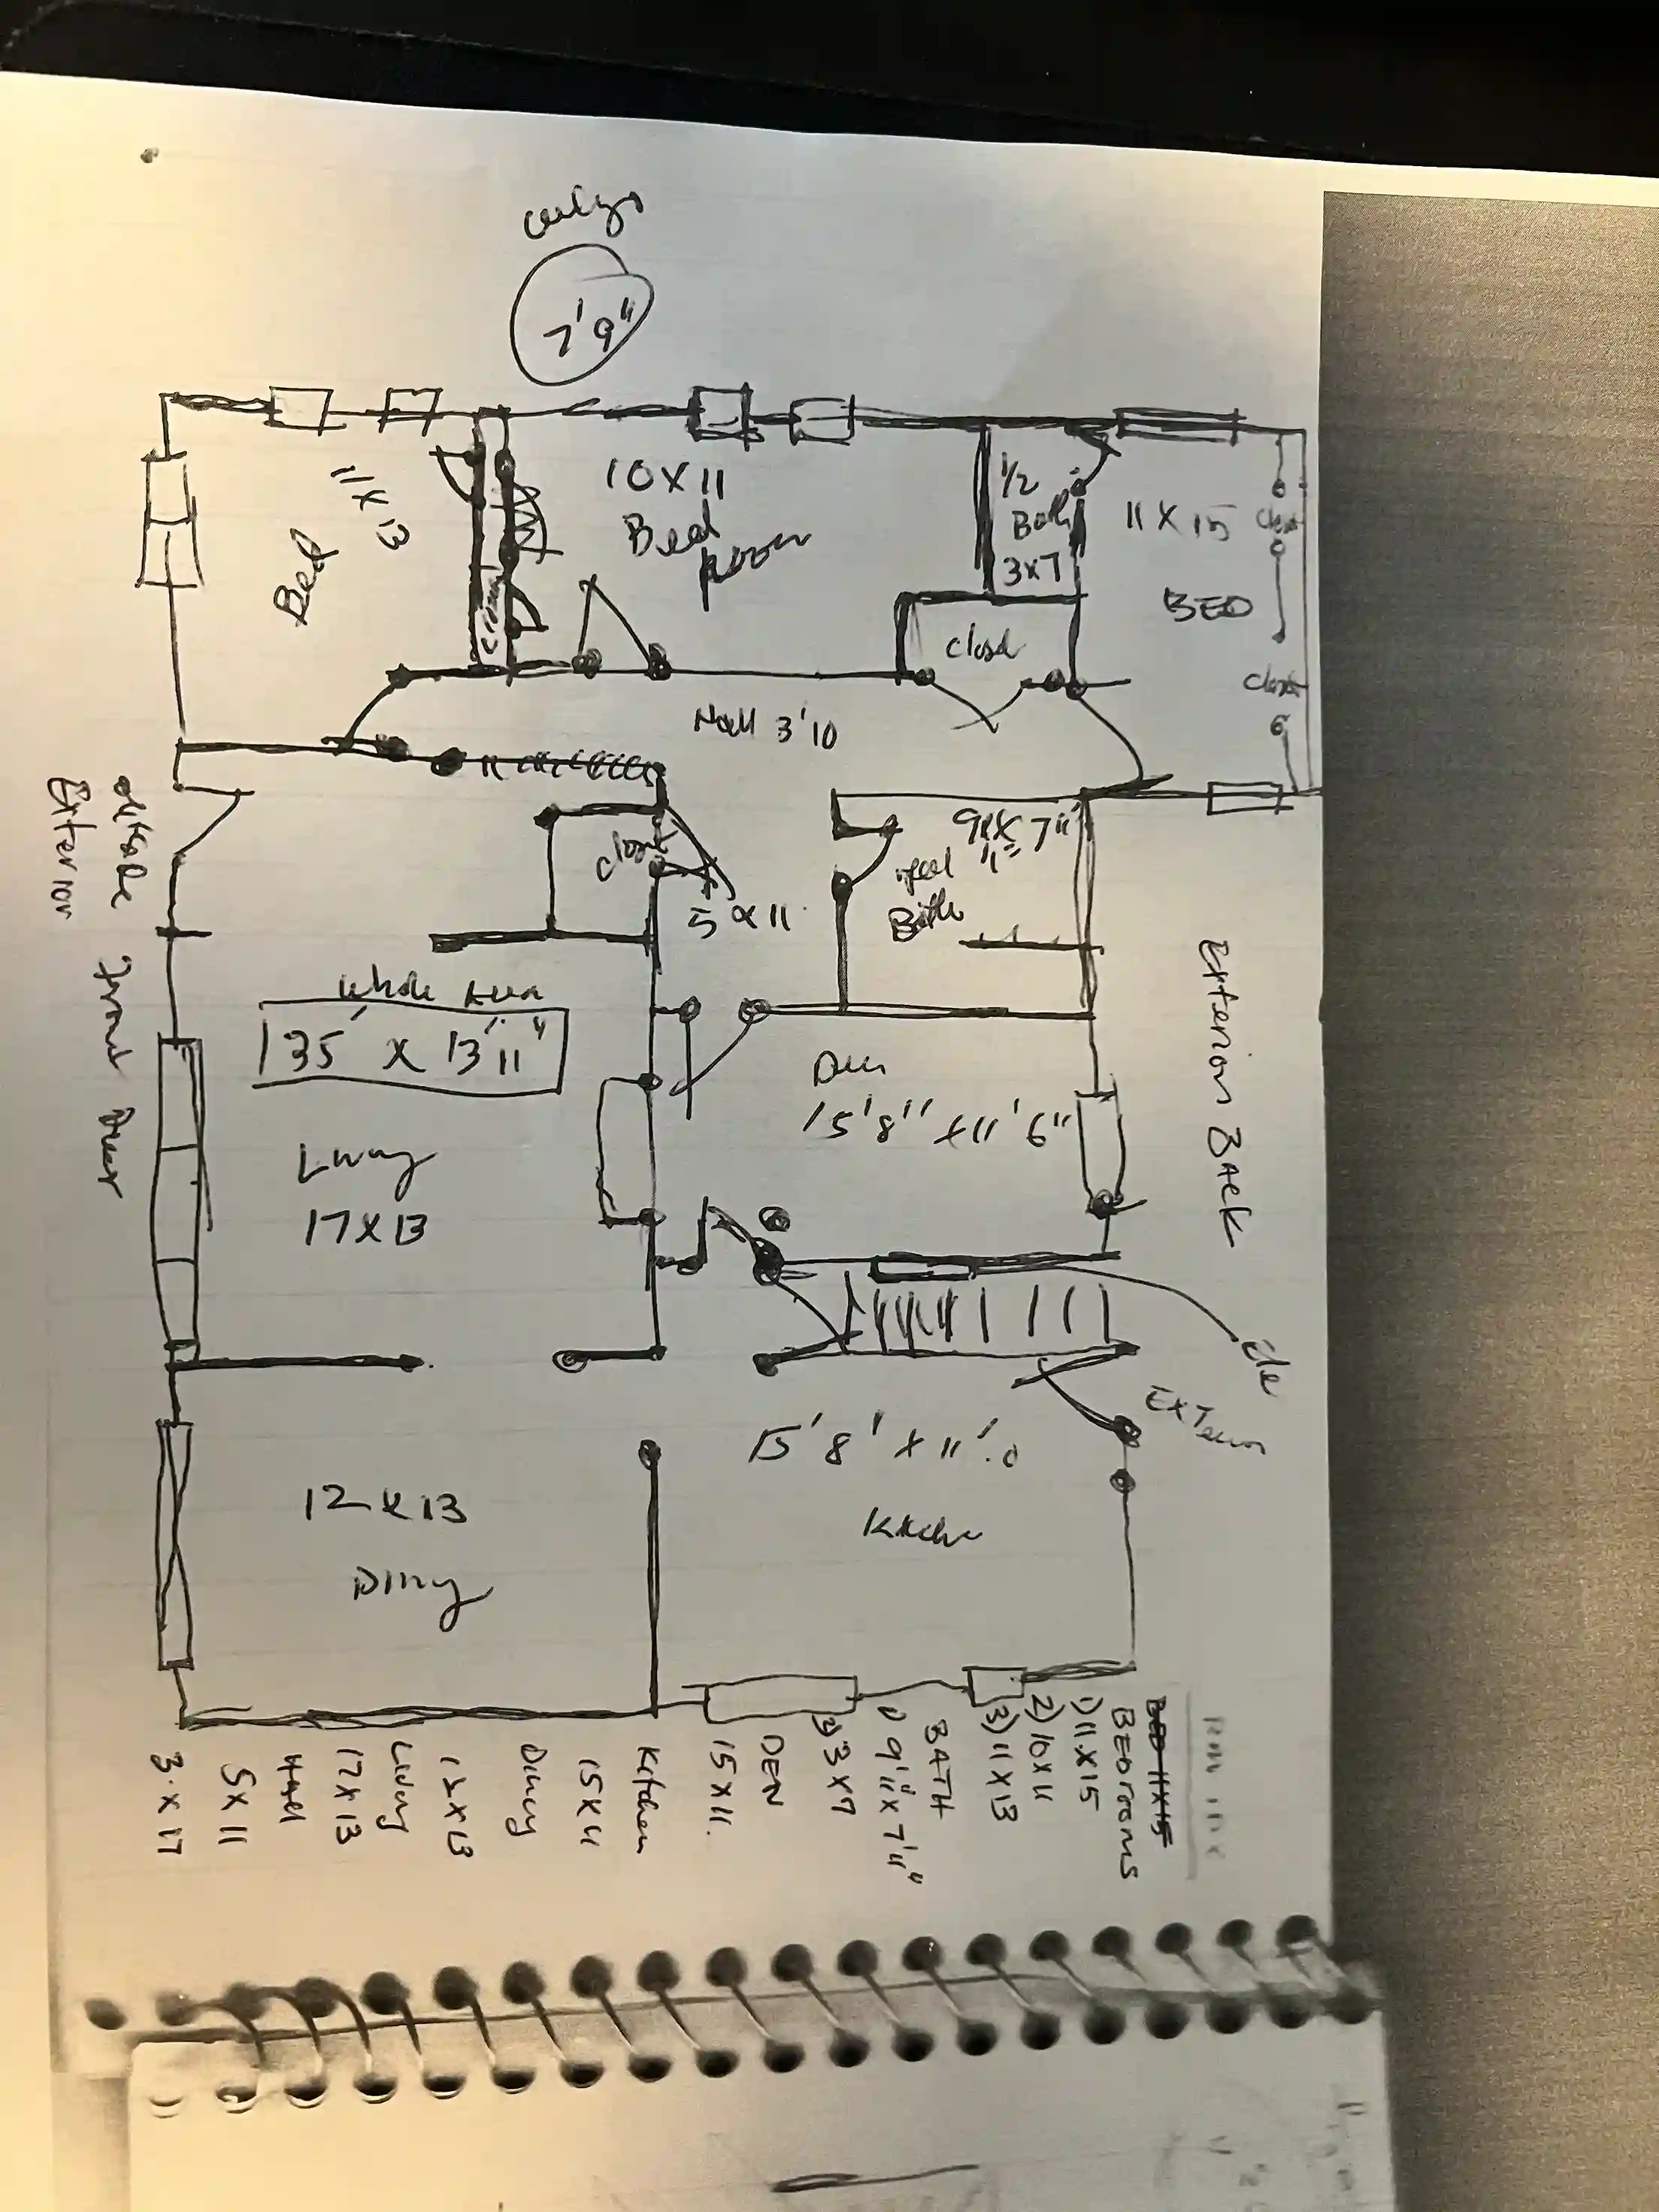 7'9"
11 x 13
Bed
10 x 11
Bed
Room
1/2
Bath
3x7
11 x 15
BED
Closet
Closet
closet
Hall 3'10
outside Front Door
Exterior
closet
5 x 11
Bath
Whole Area
35' x 13'11"
Living
17 x 13
Den
15'8" x 11'6"
Exterior Back
12 x 13
Dining
15'8' x 11'.0
Kitchen
BEDrooms
1) 11 x 15
2) 10 x 11
3) 11 x 13
BATH
1) 9'11" x 7'11"
2) 3 x 7
DEN
15 x 11.
Kitchen
15 x 11
Dining
12 x 13
Living
17 x 13
Hall
5 x 11
3 x 17